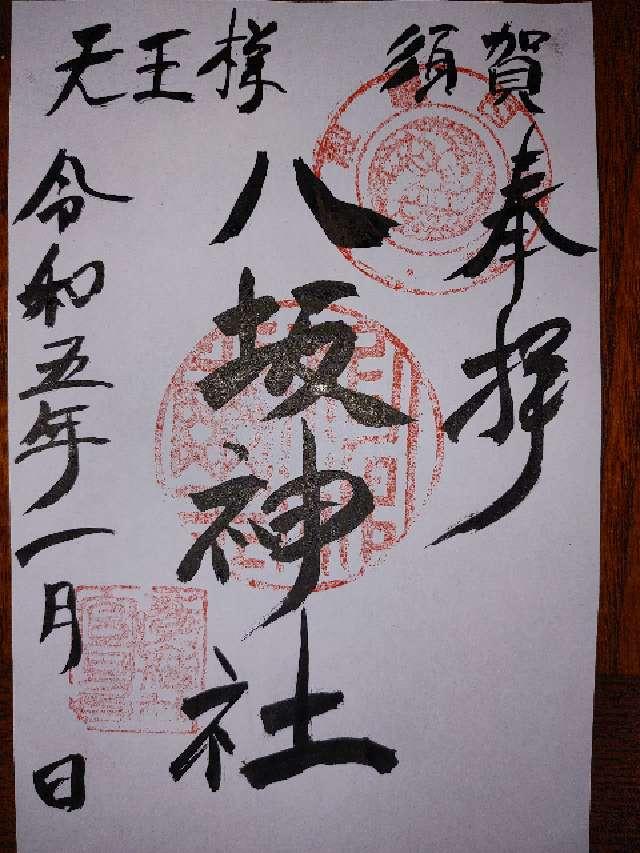 須賀
奉拝
八坂神社
天王様
令和五年一月 日